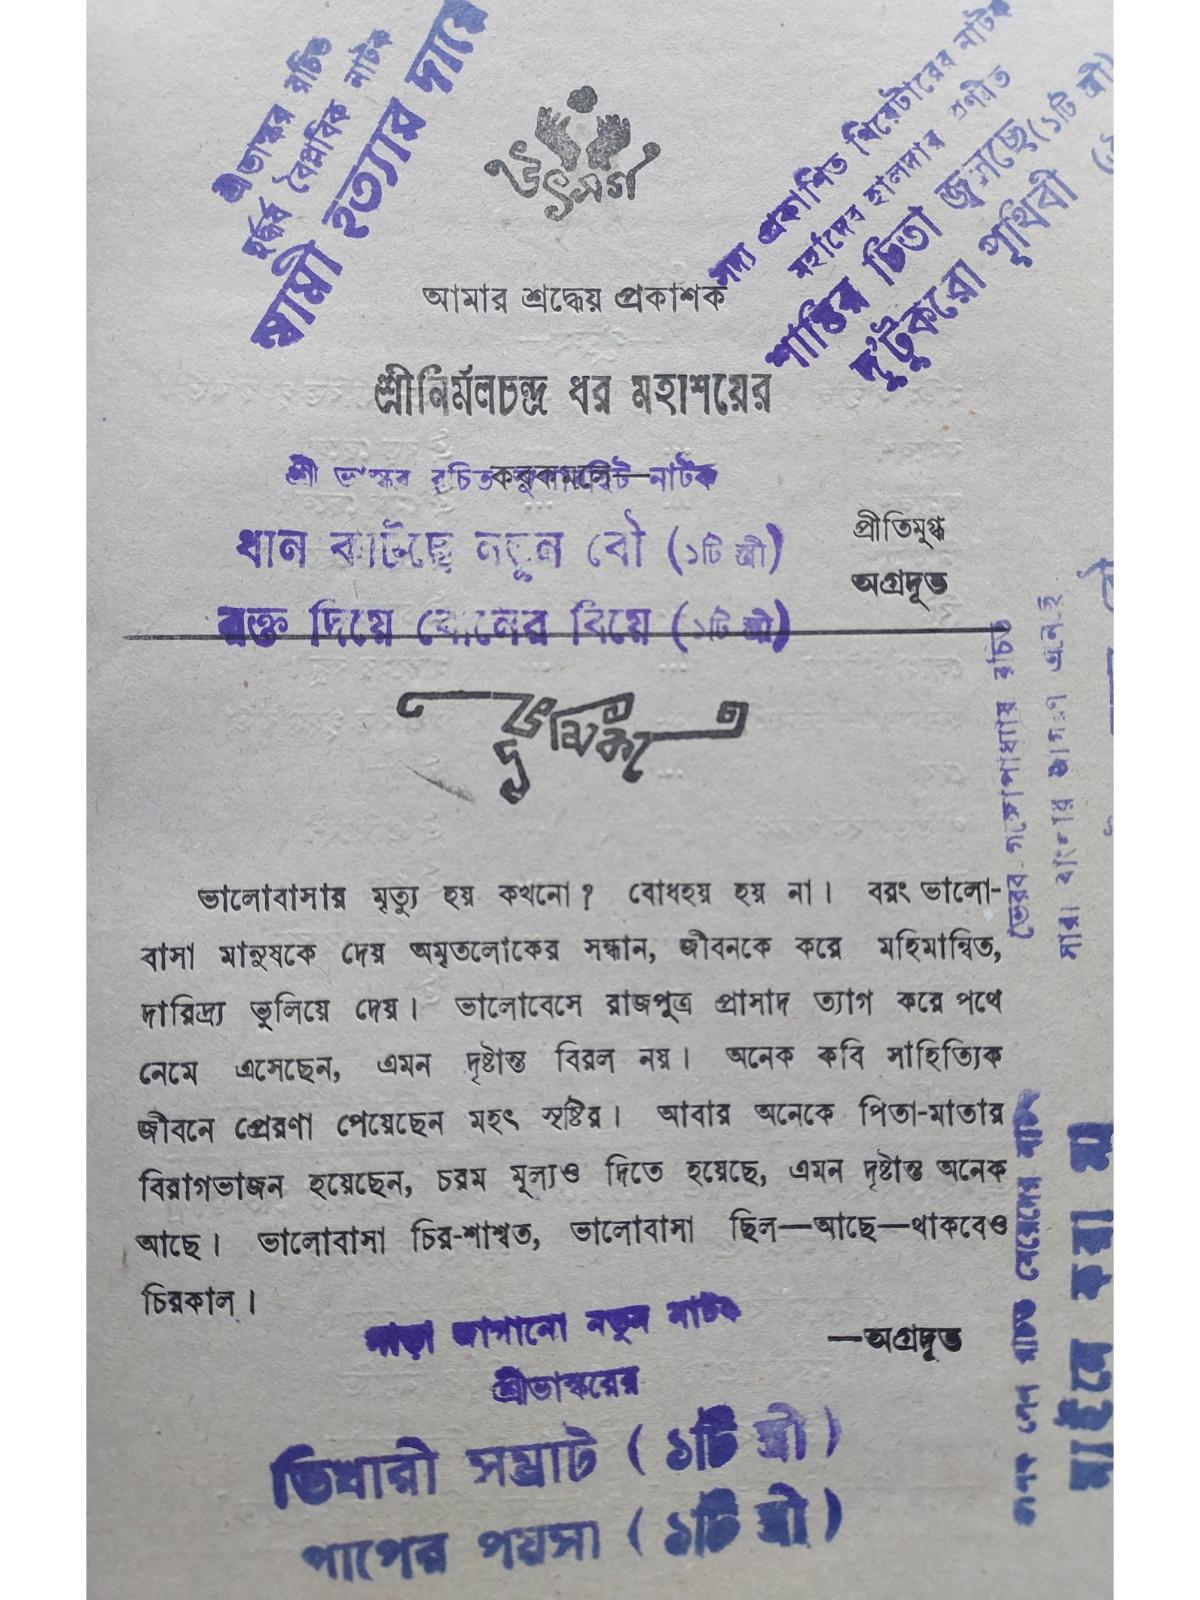 শ্রীভাস্কর রচিত
দুর্দ্ধর্ষ বৈপ্লবিক নাটক
স্বামী হত্যার দায়ে
উৎসর্গ
সদ্য প্রকাশিত থিয়েটারের নাটক
মহাদেব হালদার প্রণীত
শান্তির চিতা জ্বলছে (১টি স্ত্রী)
দু'টুকরো পৃথিবী
আমার শ্রদ্ধেয় প্রকাশক
শ্রীনির্মলচন্দ্র ধর মহাশয়ের
করকমলে—
শ্রী ভাস্কর রচিত নাটক
ধান কাটছে নতুন বৌ (১টি স্ত্রী)
রক্ত দিয়ে বোনের বিয়ে (১টি স্ত্রী)
প্রীতিমুগ্ধ
অগ্রদূত
ভূমিকা
ভালোবাসার মৃত্যু হয় কখনো? বোধহয় হয় না। বরং ভালো-
বাসা মানুষকে দেয় অমৃতলোকের সন্ধান, জীবনকে করে মহিমান্বিত,
দারিদ্র্য ভুলিয়ে দেয়। ভালোবেসে রাজপুত্র প্রাসাদ ত্যাগ করে পথে
নেমে এসেছেন, এমন দৃষ্টান্ত বিরল নয়। অনেক কবি সাহিত্যিক
জীবনে প্রেরণা পেয়েছেন মহৎ সৃষ্টির। আবার অনেকে পিতা-মাতার
বিরাগভাজন হয়েছেন, চরম মূল্যও দিতে হয়েছে, এমন দৃষ্টান্ত অনেক
আছে। ভালোবাসা চির-শাশ্বত, ভালোবাসা ছিল—আছে—থাকবেও
চিরকাল।
—অগ্রদূত
পাড়া জাগানো নতুন নাটক
শ্রীভাস্করের
ভিখারী সম্রাট (১টি স্ত্রী)
পাপের পয়সা (১টি স্ত্রী)
ভৈরব গঙ্গোপাধ্যায় রচিত
সারা বাংলার
রচিত মেয়েদের নাটক